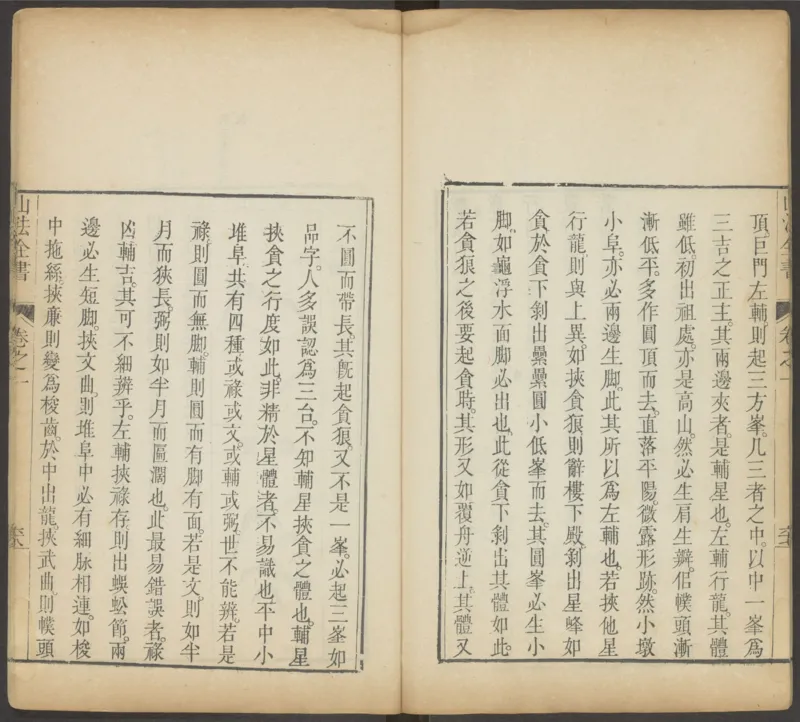 頂巨門左輔則起三方峯。凡三者之中。以中一峯為
三吉之正主。其兩邊夾者。是輔星也。左輔行龍。其體
雖低。初出祖處。亦是高山。然必生肩生辮。侣幞頭漸
漸低平。多作圓頂而去。直落平陽。微露形跡。然小墩
小阜。亦必兩邊生脚。此其所以為左輔也。若挾他星
行龍。則與上異。如挾貪狼。則辭樓下殿。剝出星峰如
貪。於貪下剝出纍纍圓小低峯而去。其圓峯必生小
脚。如龜浮水面脚必出也。此從貪下剝出其體如此。
若貪狼之後要起貪時。其形又如覆舟逆上。其體又
山法全書
卷之一
不圓而帶長。其旣起貪狼。又不是一峯。必起三峯如
品字。人多誤認為三台。不知輔星挾貪之體也。輔星
挾貪之行度如此。非精於星體者。不易識也。平中小
堆阜。共有四種。或祿或文。或輔或弼。世不能辨。若是
祿。則圓而無脚。輔則圓而有脚有面。若是文。則如半
月而狹長。弼則如半月而匾濶也。此最易錯誤者。祿
凶輔吉。其可不細辨乎。左輔挾祿存。則出蜈蚣節。兩
邊必生短脚。挾文曲。則堆阜中必有細脉相連。如梭
中拖絲。挾廉則變為梭齒。於中出龍。挾武曲。則幞頭
山法全書
卷之一